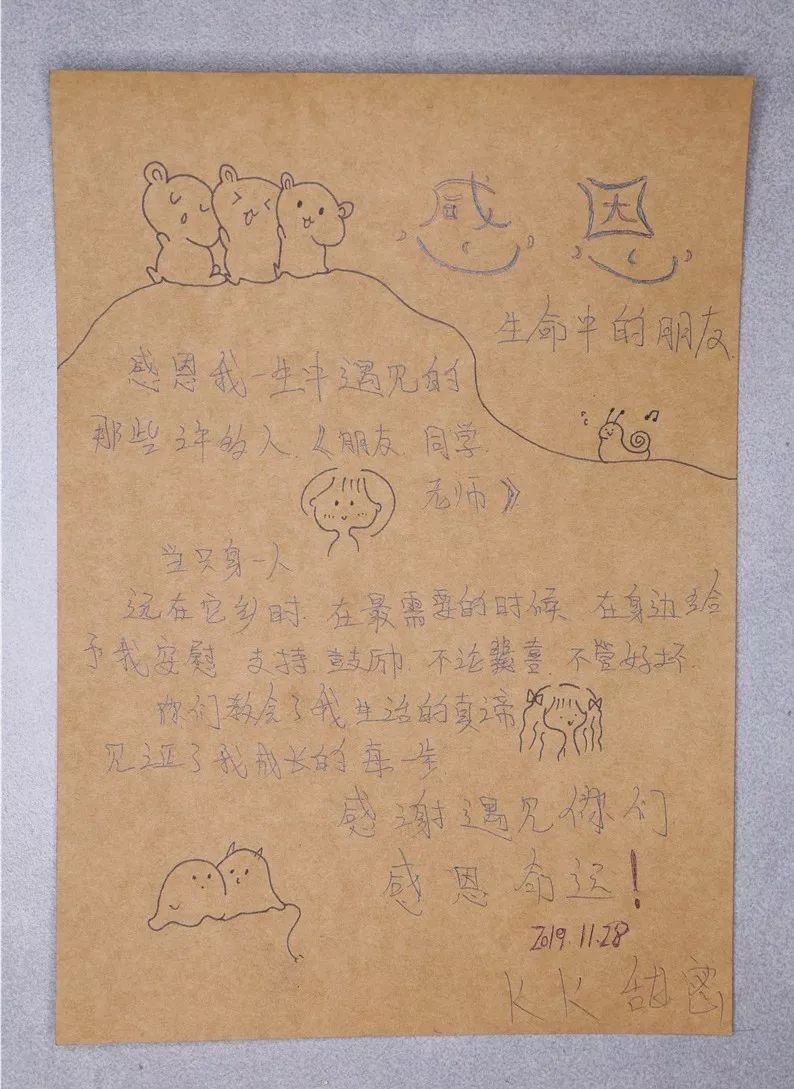 感恩
生命中的朋友
感恩我一生中遇见的
那些年的人《朋友. 同学.
老师》
当只身一人
远在它乡时. 在最需要的时候 在身边给
予我安慰 支持 鼓励. 不论 喜. 不管好坏.
你们教会了我生活的真谛
见证了我成长的每一步
感谢遇见你们
感恩命运!
2019.11.28
KK 甜蜜